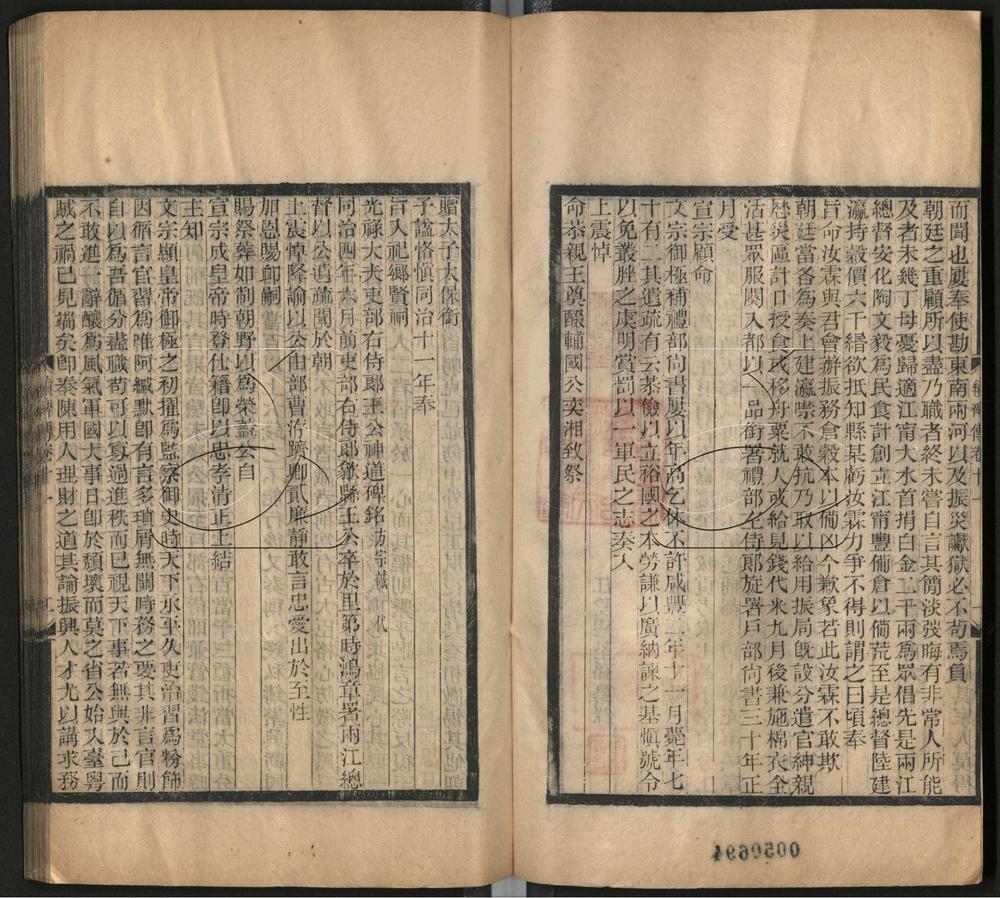 而聞也屢奉使勘東南兩河以及振災讞獄必不苟焉負
朝廷之重顧所以盡乃職者終未嘗自言其簡淡強晦有非常人所能
及者未幾丁母憂歸適江甯大水首捐白金二千兩為眾倡先是兩江
總督安化陶文毅為民食計創立江甯豐備倉以備荒至是總督陸建
瀛持穀價六千緡欲抵知縣某虧汝霖力爭不得則謂之曰頃奉
旨命汝霖與君會辦振務倉穀本以備凶今歉象若此汝霖不敢欺
朝廷當各為奏上建瀛噤不敢抗乃取以給用振局既設分遣官紳親
歷災區計口授食或移舟粟就人或給見錢代米九月後兼施棉衣全
活甚眾服闋入都以一品銜署禮部左侍郎旋署戶部尚書三十年正
月受
宣宗顧命
文宗御極補禮部尚書屢以年高乞休不許咸豐二年十一月薨年七
十有二其遺疏有云茶儉以立裕國之本勞謙以廣納諫之基慎號令
以免叢脞之虞明賞罰以一軍民之志奏入
上震悼
命恭親王奠醊輔國公奕湘致祭
贈太子太保銜
予諡恪慎同治十一年奉
旨入祀鄉賢祠
光祿大夫吏部右侍郎王公神道碑銘
同治四年六月前吏部右侍郎歙縣王公卒於里第時鴻章署兩江總
督以公遺疏聞於朝
上震悼降諭以公由部曹洊躋卿貳廉靜敢言忠愛出於至性
加恩賜卹嗣
賜祭葬如制朝野以為榮蓋公自
宣宗成皇帝時登仕籍即以忠孝清正上結
主知
文宗顯皇帝御極之初擢為監察御史時天下承平久吏治習為粉飾
因循言官習為唯阿緘默即有言多瑣屑無關時務之要其非言官則
自以為吾循分盡職苟可以寡過進秩而已視天下事若無與於己而
不敢進一辭釀為風氣軍國大事日即於頹壞而莫之省公始入臺粵
賊之禍已見端矣即奏陳用人理財之道其論振興人才尤以講求務
0050694